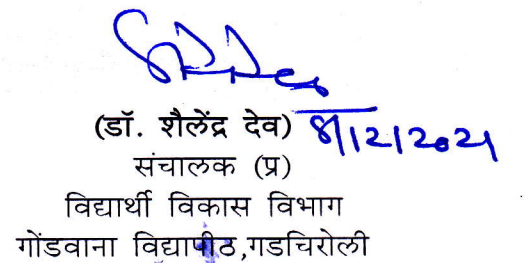 (डॉ. शैलेंद्र देव) 8/12/2021
संचालक (प्र)
विद्यार्थी विकास विभाग
गोंडवाना विद्यापीठ,गडचिरोली